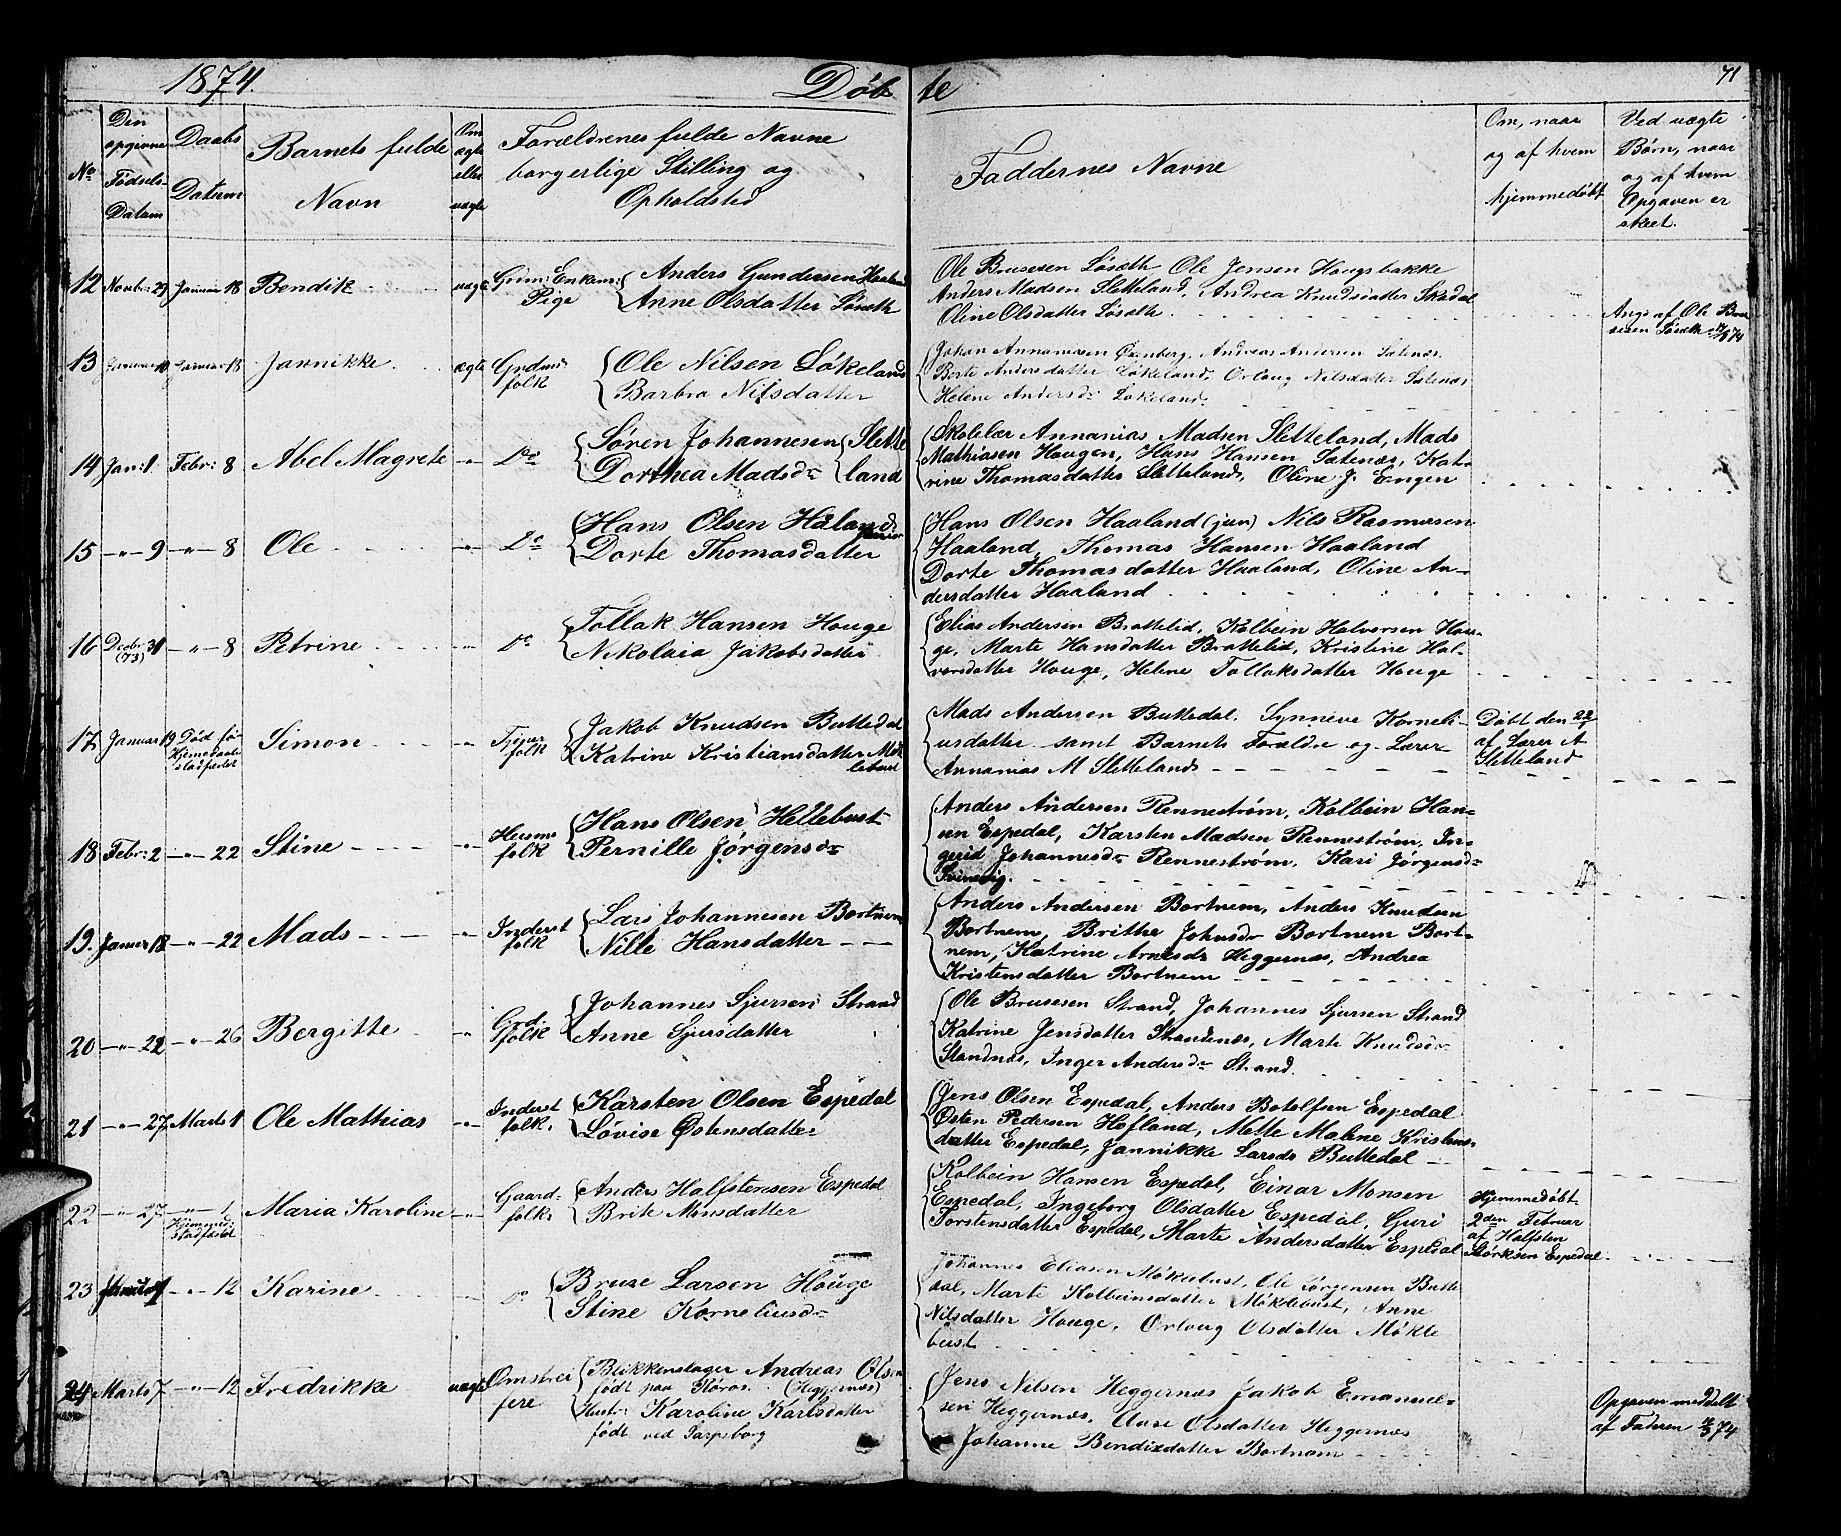 1874. Døbte 71
No
Den opgivne Fødsels-Datum
Daabs Datum
Barnets fulde Navn
Om ægte eller uægte
Forældrenes fulde Navne borgerlige Stilling og Opholdsted
Faddernes Navne
Om, naar og af hvem hjemmedøbt
Ved uægte Børn, naar og af hvem Opgaven er skeet.
12 Novbr: 29 Januar 18 Bendik uægte Pige Anders Gundersen
Anne Olsdatter Løseth
Ole Brusesen Løseth Ole Jensen Hougsbakke
Anders Madsen Sletteland, Andrea Knudsdatter Skadal
Oline Olsdatter Løseth
Ang. af Ole Brusesen Løseth
13 Januar 10 Januar 18 Jannikke ægte Grdmdfolk Ole Nilsen Løkeland
Barbra Nilsdatter
Johan Annaniasen Ørenberg, Andreas Andersen Sætenæs
Berte Andersdatter Løkeland, Orloug Nilsdatter Sætenæs
Helene Andersdr Løkeland
14 Jan: 1. Febr: 8 Abel Magrete -"- Do Søren Johannesen Slette
Dorthea Madsdr land
Skolelær Annanias Madsen Sletteland, Mads
Mathiasen Haugen, Hans Hansen Sætenæs, Kat-
rine Thomasdatter Sletteland, Oline J. Engen
15 -"- 9 -"- 8 Ole -"- Do Hans Olsen Håland
Dorte Thomasdatter
Hans Olsen Haaland (jun) Nils Rasmusen
Haaland, Thomas Hansen Haaland
Dorte Thomasdatter Haaland, Oline An-
dersdatter Haaland
16 Decbr 31 (73) -"- 8 Petrine -"- Do Tollak Hansen Houge
Nikolaia Jakobsdatter
Elias Andersen Brattelid, Kolbein Halversen Hou-
ge, Marte Hansdatter Brattelid, Kristine Hal-
versdatter Houge, Helene Tollaksdatter Houge
17 Januar 19 Død før Hjemedaab stadfæstet Simon -"- folk Jakob Knudsen Buttedal
Katrine Kristiansdatter Møklebust
Mads Andersen Buttedal, Synneve Korneli-
usdatter samt Barnets Forældre og Lærer
Annanias M Sletteland
Døbt den 22/1
af Lærer A
Sletteland
18 Febr: 2 -"- 22 Stine -"- Husmdfolk Hans Olsen Hellebust
Pernille Jørgensdr
Anders Andersen Rennestrøm, Kolbein Han-
sen Espedal, Karsten Madsen Rennestrøm, In-
gerid Johannesdr Rennestrøm, Kari Jørgensdr
Svinevig.
19. Januar 18 -"- 22 Mads -"- Inderst folk Lars Johannesen Bortnem
Nille Hansdatter
Anders Andersen Bortnem, Anders Knudsen
Bortnem, Brithe Johnsdr Bortnem Bort-
nem, Katrine Arnesdr Heggernæs, Andrea
Kristensdatter Bortnem
20 -"- 22 -"- 26 Bergitte -"- Grd.folk Johannes Sjursen Strand
Anne Sjursdatter
Ole Brusesen Strand, Johannes Sjursen Strand
Katrine Jensdatter Strandenæs, Marte Knudsdr
Standnæs, Inger Andersdr Strand.
21 -"- 27 Marts 1 Ole Mathias -"- Inderst folk. Karsten Olsen Espedal
Lovise Østensdatter
Jens Olsen Espedal, Anders Botolfsen Espedal
Østen Pedersen Hofland, Mette Malene Kristens-
datter Espedal, Jannikke Larsdr Buttedal
22 -"- 27 -"- 1 Hjemmed: stadfæstet Maria Karoline -"- Gaardfolk Anders Halfstensen Espedal
Brite Monsdatter
Kolbein Hansen Espedal, Einar Monsen
Espedal, Ingeborg Olsdatter Espedal, Guri
Torstensdatter Espedal, Marte Andersdatter Espedal
Hjemmedøbt
2den Februar
af Halfsten
Størksen Espedal
23 -"- 12 Karine Do Bruse Larsen Houge
Stine Korneliusdr
Johannes Eliasen Møklebust, Ole Jørgensen Butte
dal, Marte Kolbeinsdatter Møklebust, Anne
Nilsdatter Houge, Orloug Olsdatter Møkle
bust
24 Marts 7 -"- 12 Fredrikke uægte Omstreifere Blikkenslager Andreas Olsen
født paa Røros. (Heggernæs)
Hustr: Karoline Karlsdatter
født ved Sarpsborg
Jens Nilsen Heggernæs Jakob Emanuel-
sen Heggernæs, Anne Olsdatter Heggernæs
Johanne Bendixdatter Bortnem
Opgaven meddelt
af Faderen 7/3 74